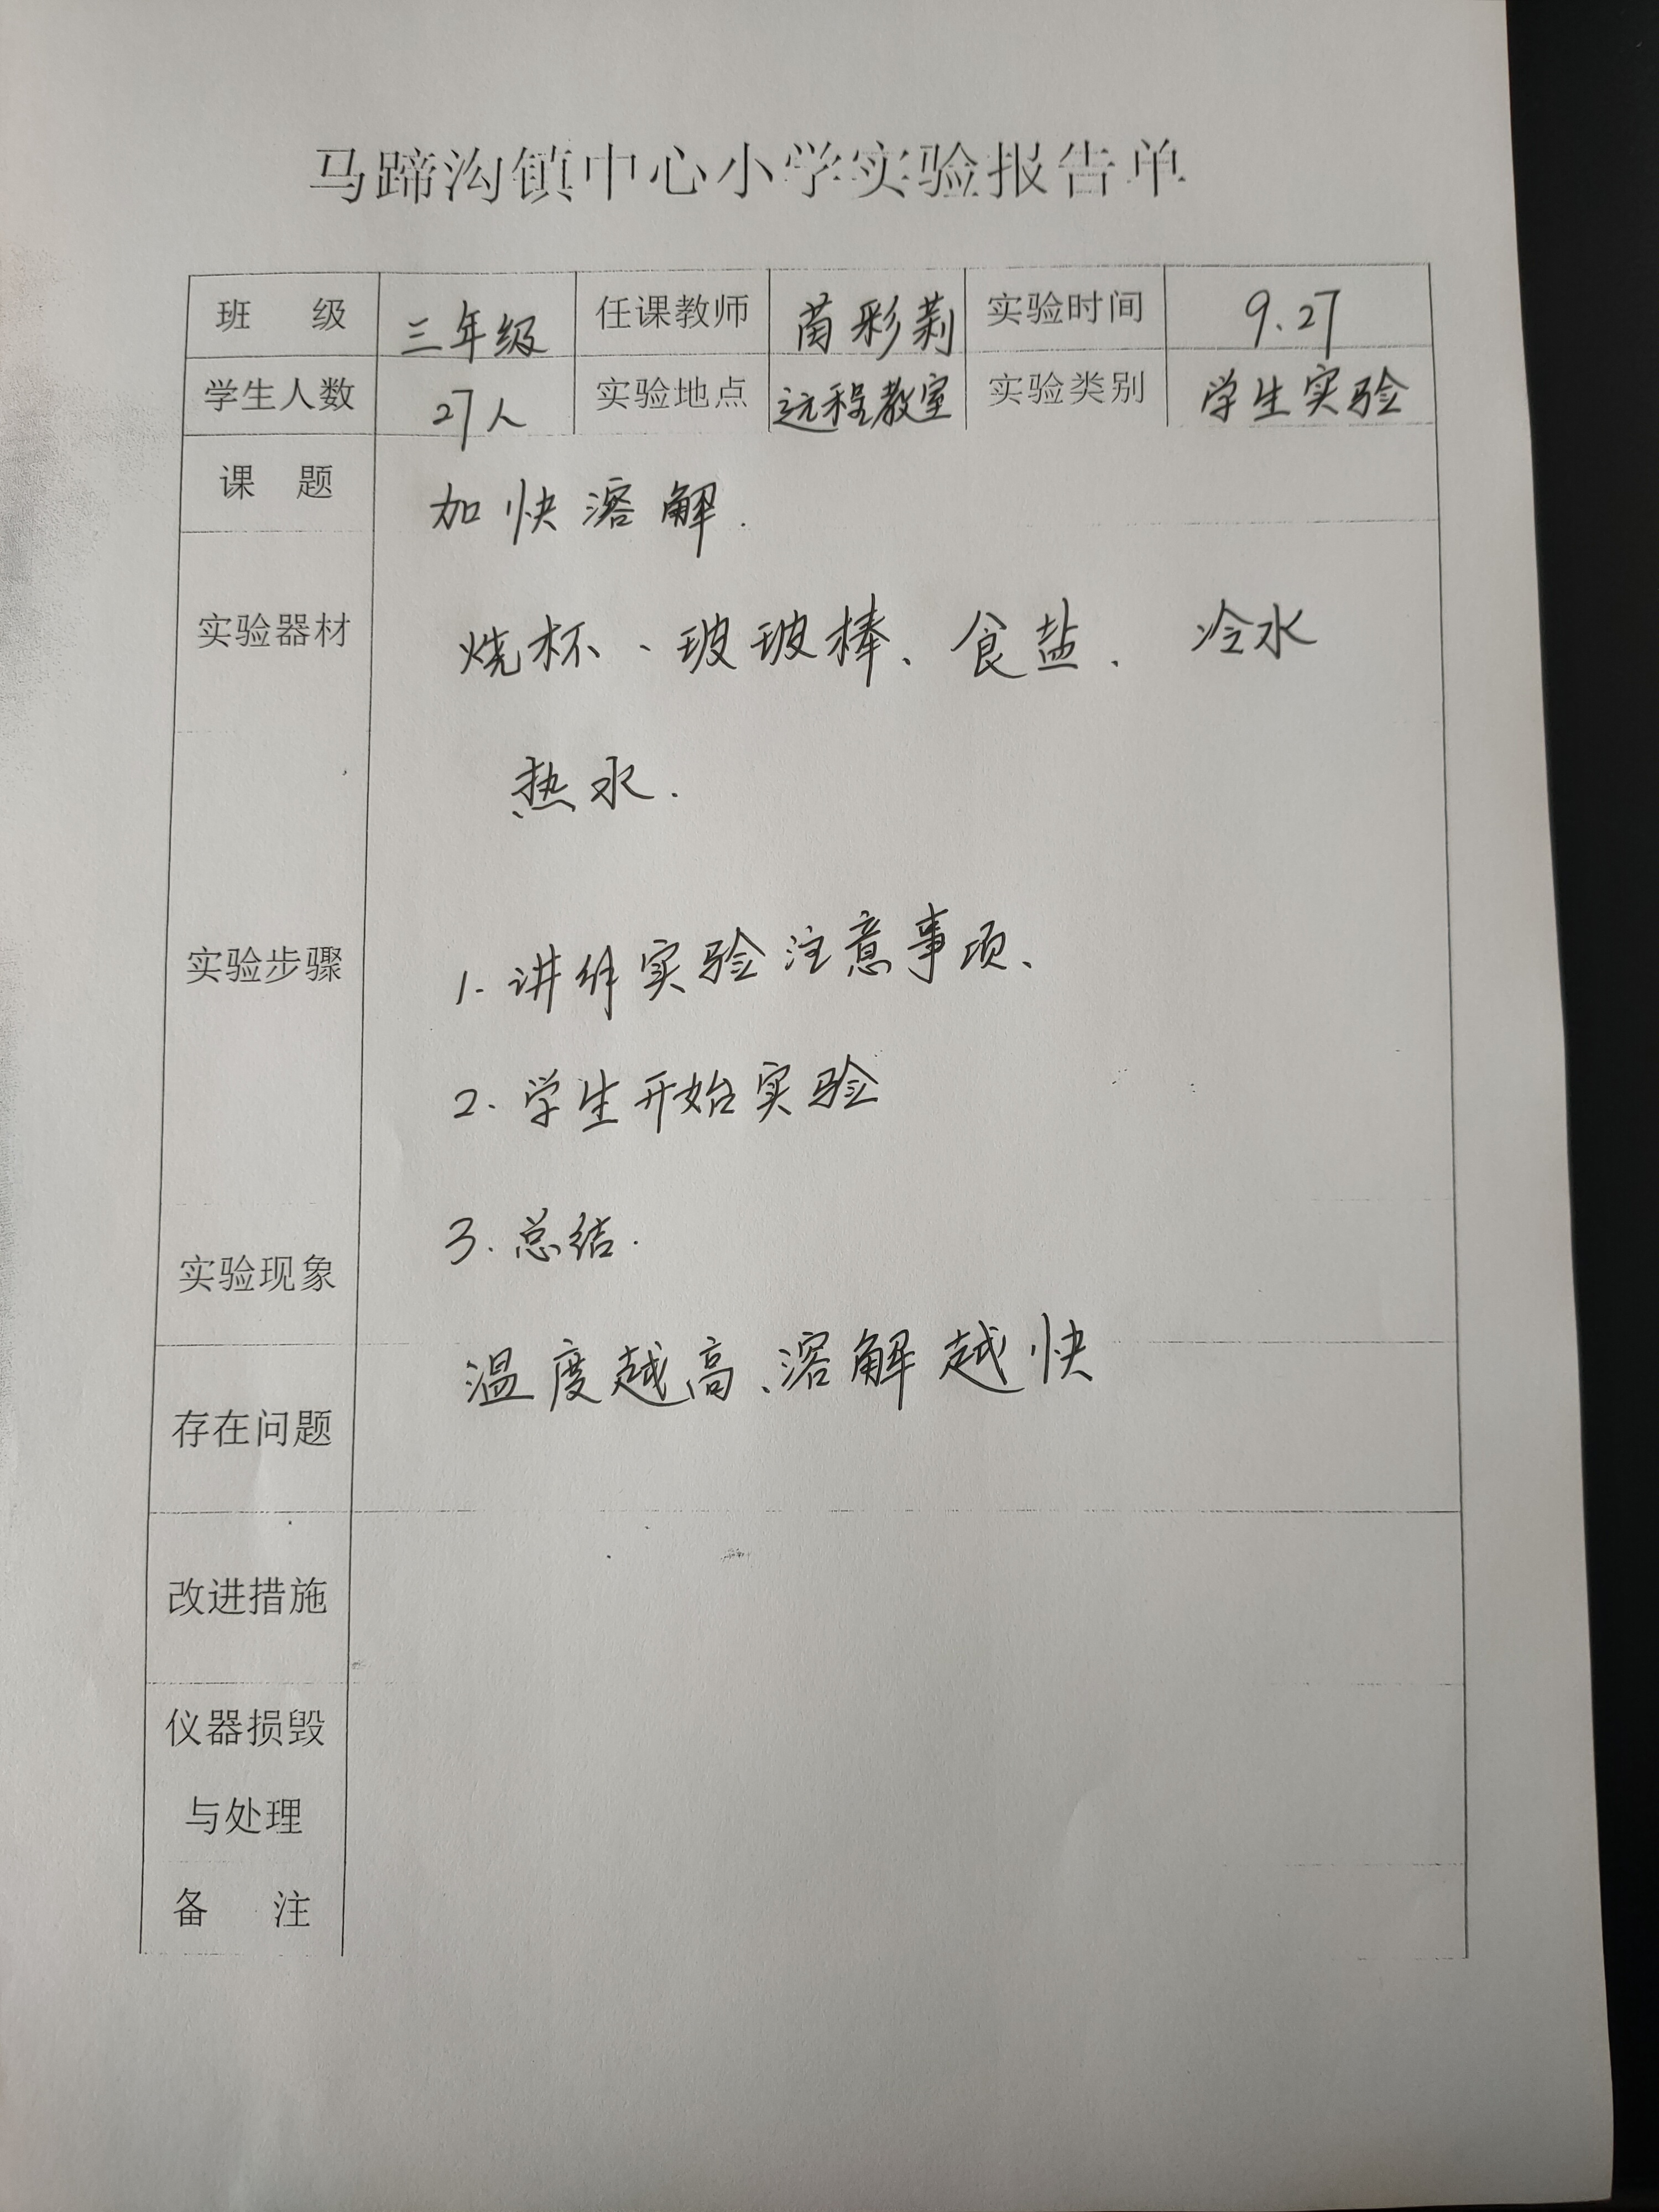 马蹄沟镇中心小学实验报告单
班 级 三年级 任课教师 苗彩莉 实验时间 9.27
学生人数 27人 实验地点 远程教室 实验类别 学生实验
课 题 加快溶解.
实验器材 烧杯、玻玻棒、食盐、冷水
热水.
实验步骤 1. 讲解实验注意事项、
2. 学生开始实验
3. 总结.
实验现象
温度越高、溶解越快
存在问题
改进措施
仪器损毁
与处理
备 注